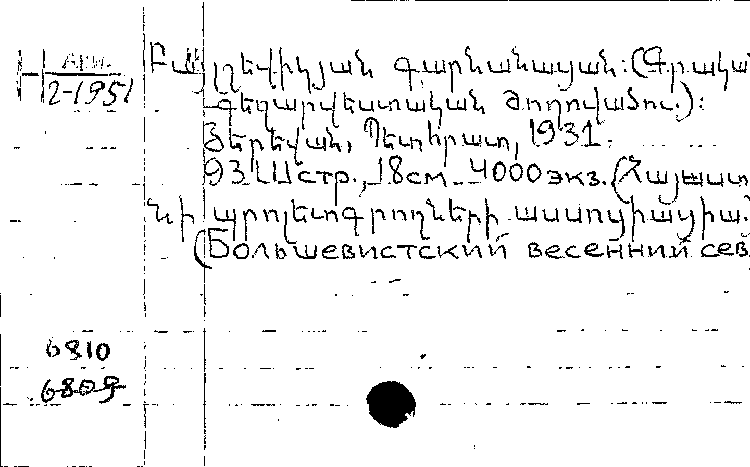 H АРМ.
2-1951
Բայլշևիկյան գարնանացան: (Գրակա
-գեղարվեստական ժողովածու.):
Յերեվան, Պետհրատ, 1931.
93 стр., 18см 4000экз. (Հայաստ
նի պրոլետգրողների ասսոցիացիա.
(Большевистский весенний сев
6810
6809